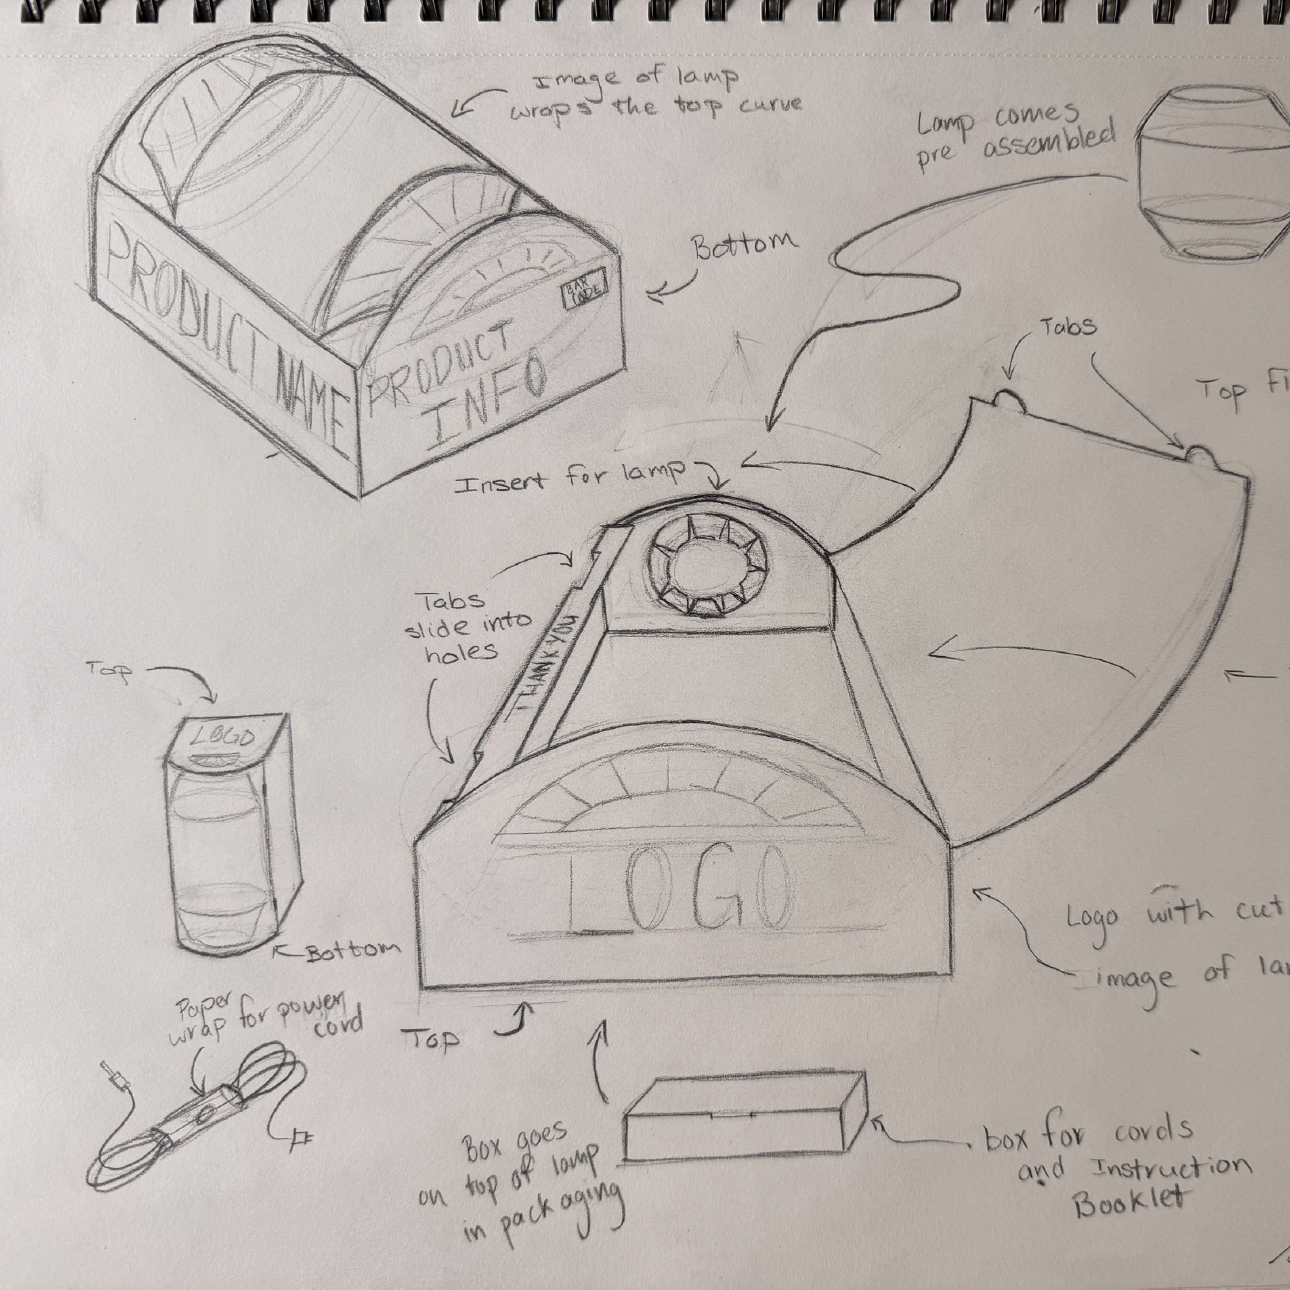 Image of lamp
wraps the top curve
Lamp comes
pre assembled
Bottom
BAR
CODE
PRODUCT NAME
PRODUCT
INFO
Tabs
Top Fl
Insert for lamp
Tabs
slide into
holes
THANK YOU
Top
LOGO
Bottom
LOGO
Logo with cut
image of la
Paper
wrap for power
cord
Top
Box goes
on top of lamp
in packaging
box for cords
and Instruction
Booklet